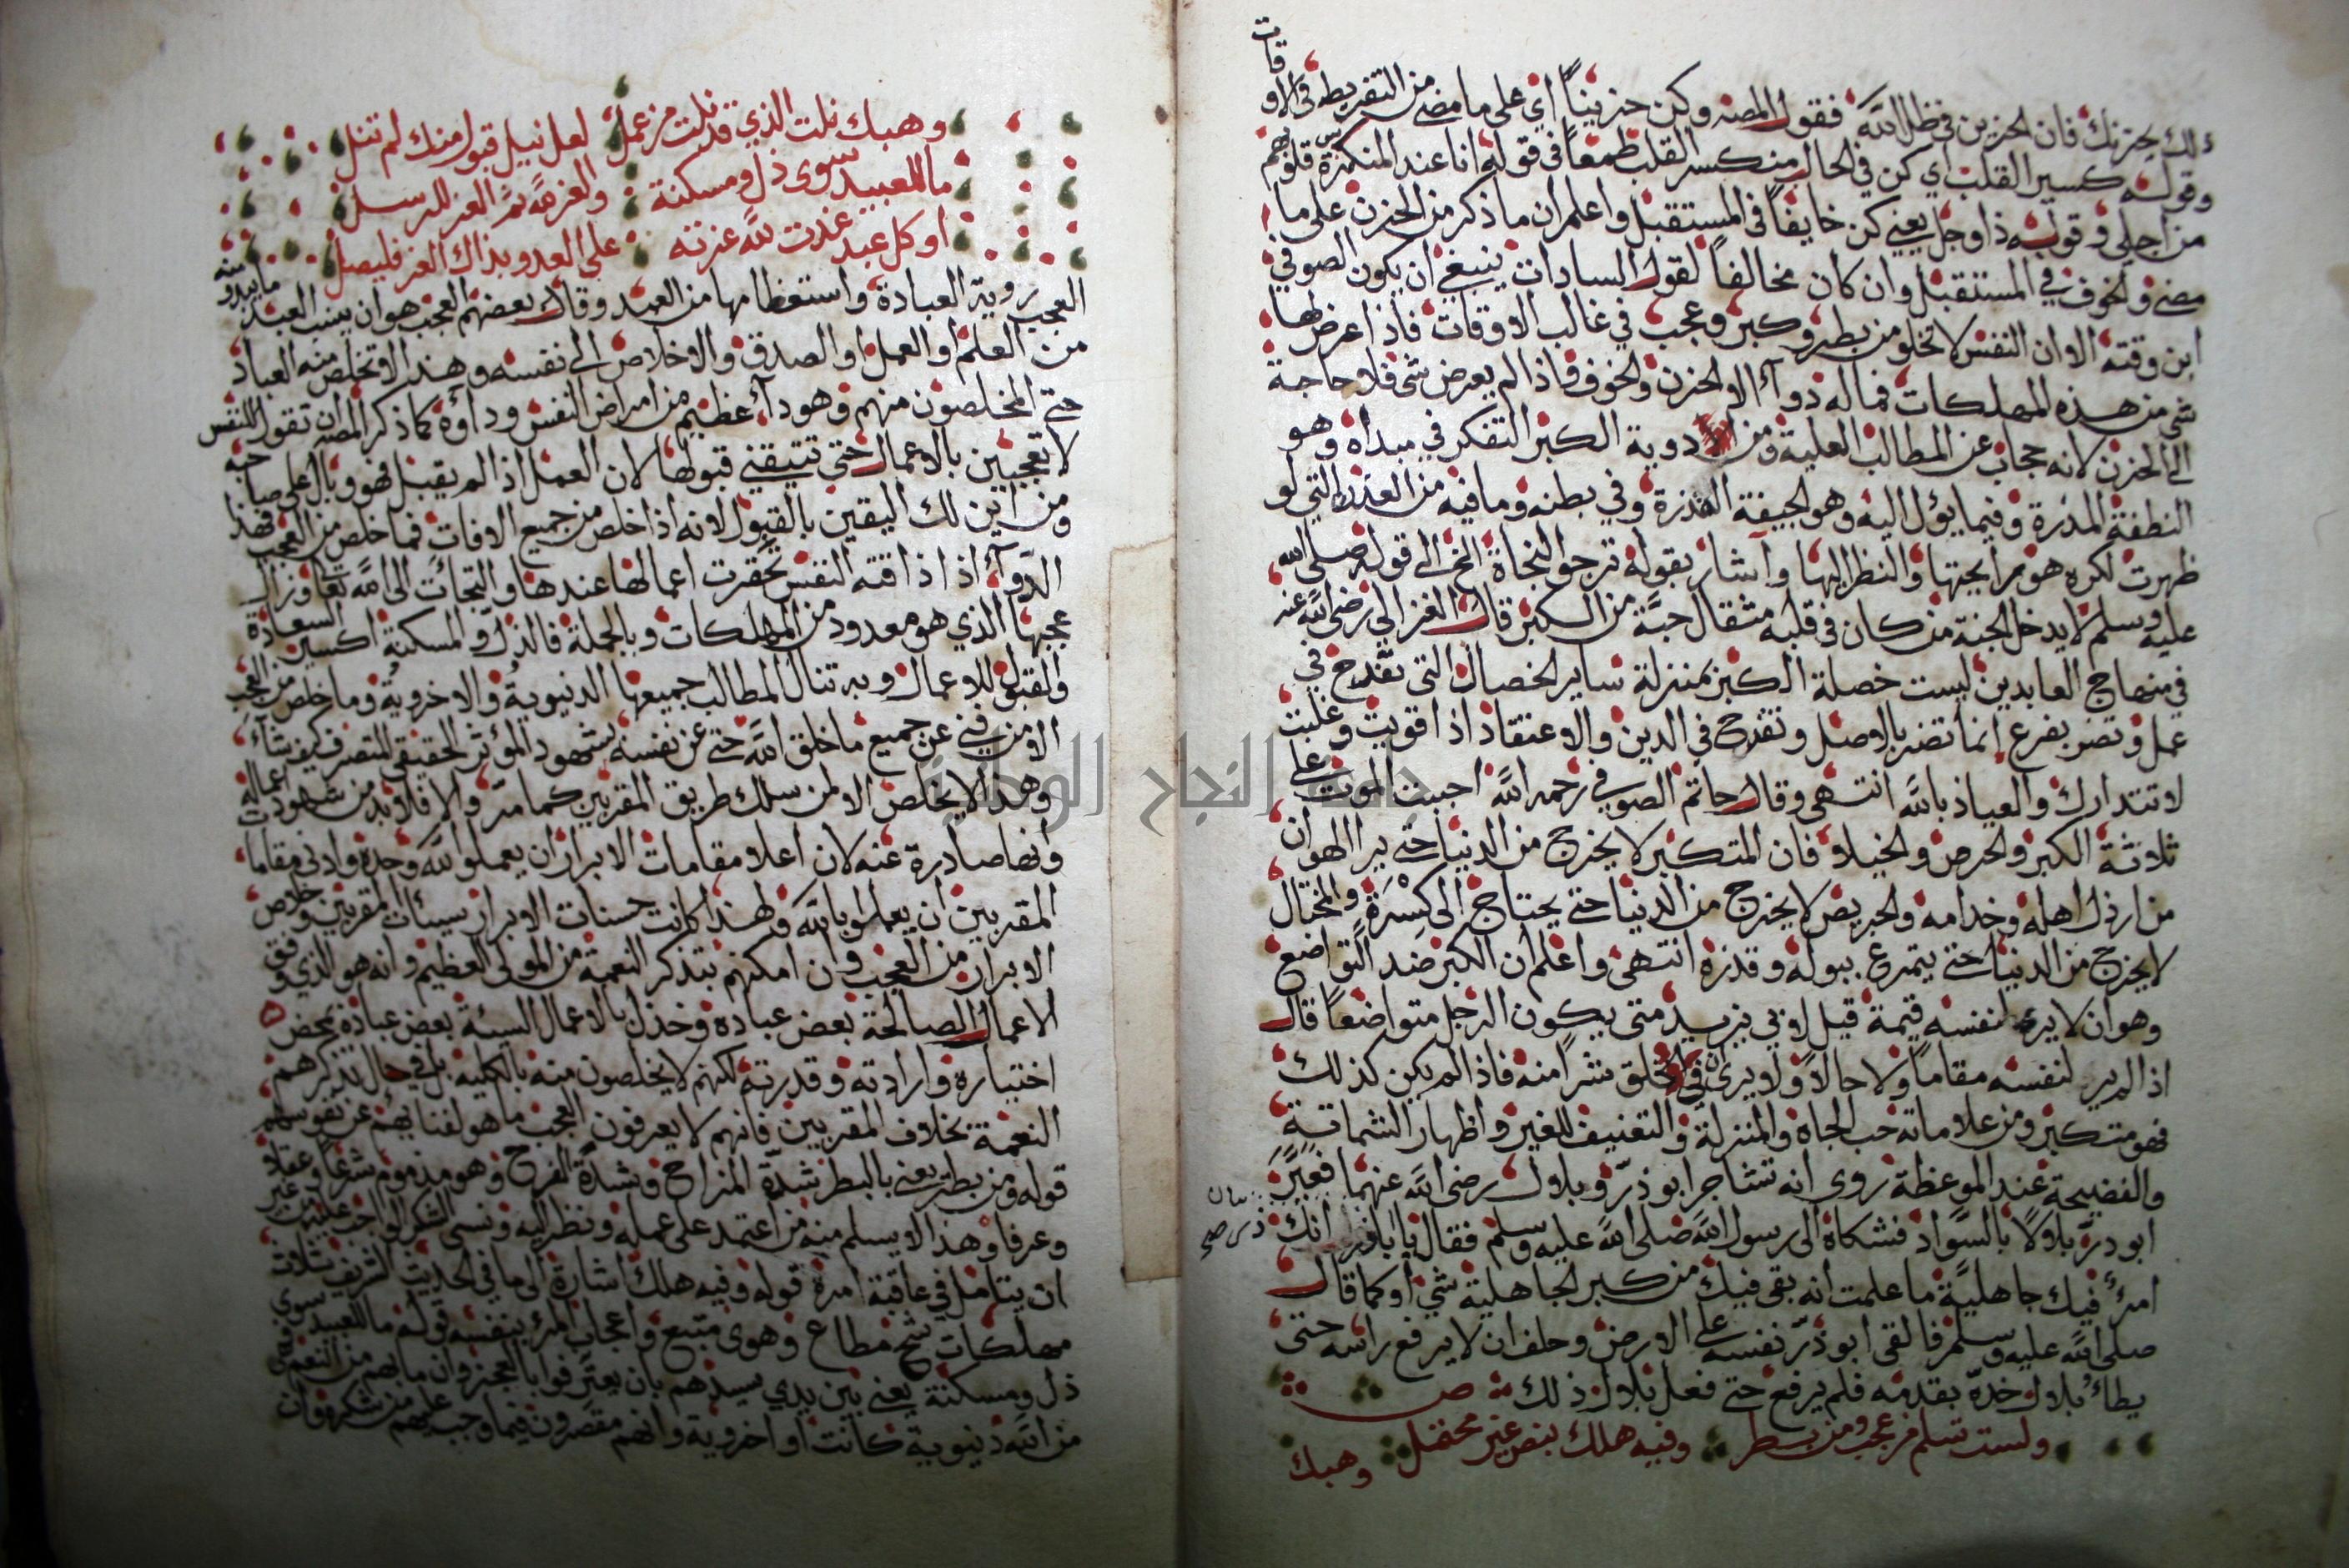 قات
ذلك يحزنك فان الحزين في ظل الله فقول المصنه وكن حزيناً اي على ما مضى من التفريط في الاو
وقوله كسير القلب اي كن في الحال منكسر القلب طمعاً في قوله انا عند المنكسرة قلوبهم
من اجلي وقوله ذا وجل يعني كن خايفاً في المستقبل واعلم ان ما ذكر من الحزن على ما
مضى والخوف في المستقبل وان كان مخالفاً لقول السادات ينبغي ان يكون الصوفي
ابن وقته الا ان النفس لا تخلو من بطر وكبر وعجب في غالب الاوقات فاذا عرض لها
شي من هذه المهلكات فماله دوآ الا الحزن والخوف فاذا لم يعرض شي فلا حاجة
الى الحزن لانه حجاب عن المطالب العلية ومن ادوية الكبر التفكر في مبداه وهو
النطفة المذرة وفيما يؤل اليه وهو الجيفة القذرة وفي بطنه وما فيه من العذرة التي لو
ظهرت لكره هو رايحتها والنظر اليها واشار بقوله ترجو النجاة الخ الى قوله صلى الله
عليه وسلم لا يدخل الجنة من كان في قلبه مثقال حبة من الكبر قال الغزالي رضي الله عنه
في منهاج العابدين ليست خصلة الكبر بمنزلة ساير الخصال التي تقدح في
عمل وتضر بفرع انما تضر بالاصل وتقدح في الدين والاعتقاد اذا قويت وغلبت
لا تتدارك والعياذ بالله انتهى وقال حاتم الصوفي رحمه الله اجبت الموت على
ثلاثة الكبر والحرص والخيلا فان المتكبر لا يخرج من الدنيا حتى يرا الهوان
من ارذل اهله وخدامه والحريص لا يخرج من الدنيا حتى يحتاج الى كسرة والمختال
لا يخرج من الدنيا حتى يتمرغ ببوله وقذره انتهى واعلم ان الكبر ضد التواضع
وهو ان لا يرى لنفسه قيمة قيل لابي يزيد متى يكون الرجل متواضعاً قال
اذا لم ير لنفسه مقاماً ولا حالاً ولا يرى ان في الخلق شراً منه فاذا لم يكن كذلك
فهو متكبر ومن علاماته حب الجاه والمنزلة والتعنيف للغير واظهار الشماتة
والفضيحة عند الموعظة روي انه تشاجر ابو ذرّ وبلال رضي الله عنهما فعيَّرَ
ابو ذرّ بلالاً بالسواد فشكاه الى رسول الله صلى الله عليه وسلم فقال يا ابا ذر انك
امرؤ فيك جاهلية ما علمت انه بقى فيك من كبر الجاهلية شي او كما قال
صلى الله عليه وسلم فالقى ابو ذرّ نفسه على الارض وحلف ان لا يرفع راسه حتى
يطاء بلال خدّه بقدمه فلم يرفع حتى فعل بلال ذلك ص
ولست تسلم من عجب ومن بطر وفيه هلك بنص غير محتمل
وهبك
وهبك نلت الذي قد نلت من عمل لعل نيل قبول منك لم تنل
ما للعبيد سوى ذل ومسكنة والعز لله ثم العز للرسل
او كل عبد غدت لله عزته على العدو بذاك العز فليصل
العجب روية العبادة واستعظامها من العبد وقال بعضهم العجب هو ان ينسب العبد ما يبدو منه
من العلم او العمل او الصدق والاخلاص الى نفسه وهذا لا تخلص منه العباد
حتى المخلصون منهم وهو دآ عظيم من امراض النفس ودآؤه كما ذكر المصنه ان تقول للنفس
لا تعجبين بالاعمال حتى تتيقني قبولها لان العمل اذا لم يقبل فهو وبال على صاحبه
ومن اين لك اليقين بالقبول لانه اذا خلص من جميع الافات فما خلص من العجب فهذا
الدوآ اذا ذاقته النفس تحقرت اعمالها عندها والتجأت الى الله تعا وزال
عجبها الذي هو معدود من المهلكات وبالجملة فالذل والمسكنة اكسير السعادة
والقبول للاعمال وبه تنال المطالب جميعها الدنيوية والاخروية وما خلص من العجب
الا من فنى عن جميع ما خلق الله حتى عن نفسه بشهود المؤثر الحقيقي المتصرف كيف شآء
وهذا لا يخلص الا لمن سلك طريق المقربين كما مرّ والا فلا بد من شهود اعماله
وانها صادرة عنه لان اعلا مقامات الابرار ان يعملوا لله وحده وادنى مقامات
المقربين ان يعملوا بالله ولهذا كانت حسنات الابرار سيئات المقربين وخلاص
الابرار من العجب وان امكنهم بتذكر النعمة من المولى العظيم وانه هو الذي وفق
الاعمال الصالحة بعض عباده وخذل بالاعمال السيئة بعض عباده بمحض
اختياره وارادته وقدرته لكنهم لا يخلصون منه بالكلية بل في حال تذكرهم
النعمة بخلاف المقربين فانهم لا يعرفون العجب ما هو لفنايهم عن نفوسهم
قوله ومن بطر يعني بالبطر شدّة المزاح وشدّة الفرح وهو مذموم شرعاً وعقلا
وعرفا وهذا لا يسلم منه من اعتمد على عمله ونظر اليه ونسي الشكر الواجب عليه من غير
ان يتامل في عاقبة امره قوله وفيه هلك اشارة الى ما في الحديث الشريف ثلاث
مهلكات شح مطاع وهوى متبع واعجاب المرء بنفسه قوله ما للعبيد سوى
ذل ومسكنة يعني بين يدي سيدهم بان يعترفوا بالعجز وان ما بهم من النعم فهي
من الله دنيوية كانت او اخروية وانهم مقصرون فيما وجب عليهم من شكره وان
جامعة النجاح الوطنية